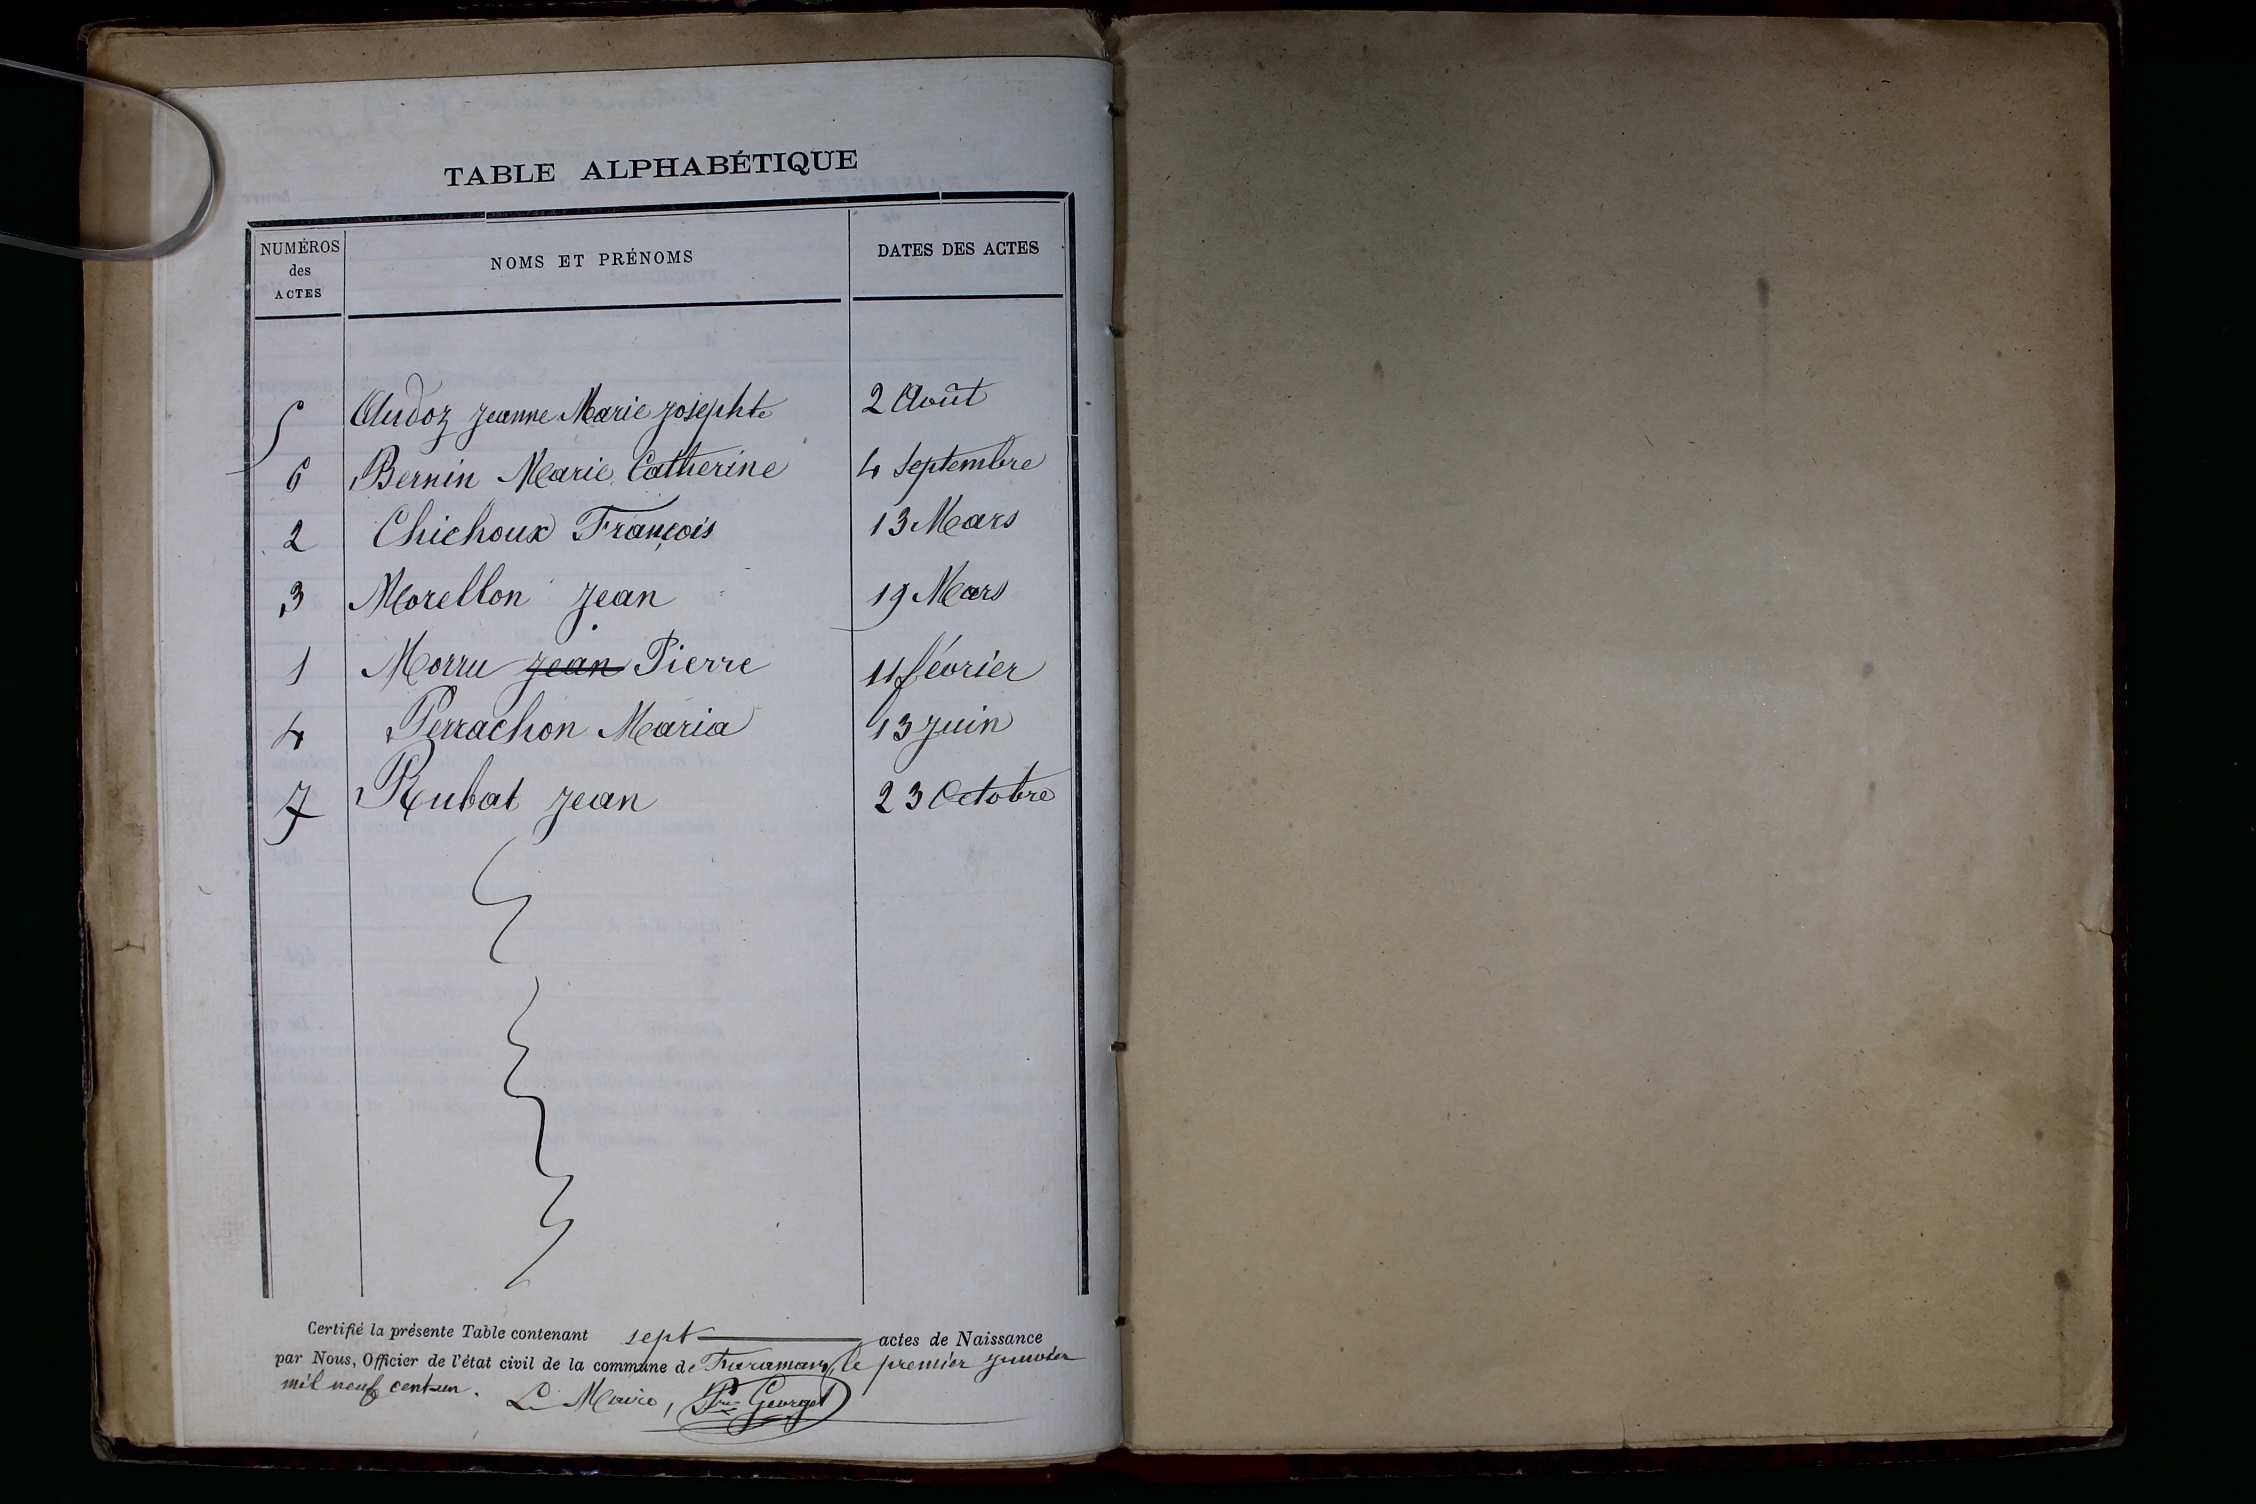 TABLE ALPHABÉTIQUE
NUMÉROS des ACTES NOMS ET PRÉNOMS DATES DES ACTES
5 Audoz Jeanne Marie Josephte 2 Août
6 Bernin Marie Catherine 4 Septembre
2 Chichoux François 13 Mars
3 Morellon Jean 19 Mars
1 Morru Jean Pierre 11 février
4 Perrachon Maria 13 Juin
7 Rubat Jean 23 Octobre
Certifié la présente Table contenant sept actes de Naissance
par Nous, Officier de l'état civil de la commune de Tramaran, le premier Janvier
mil neuf cent un.
Le Maire, Georget